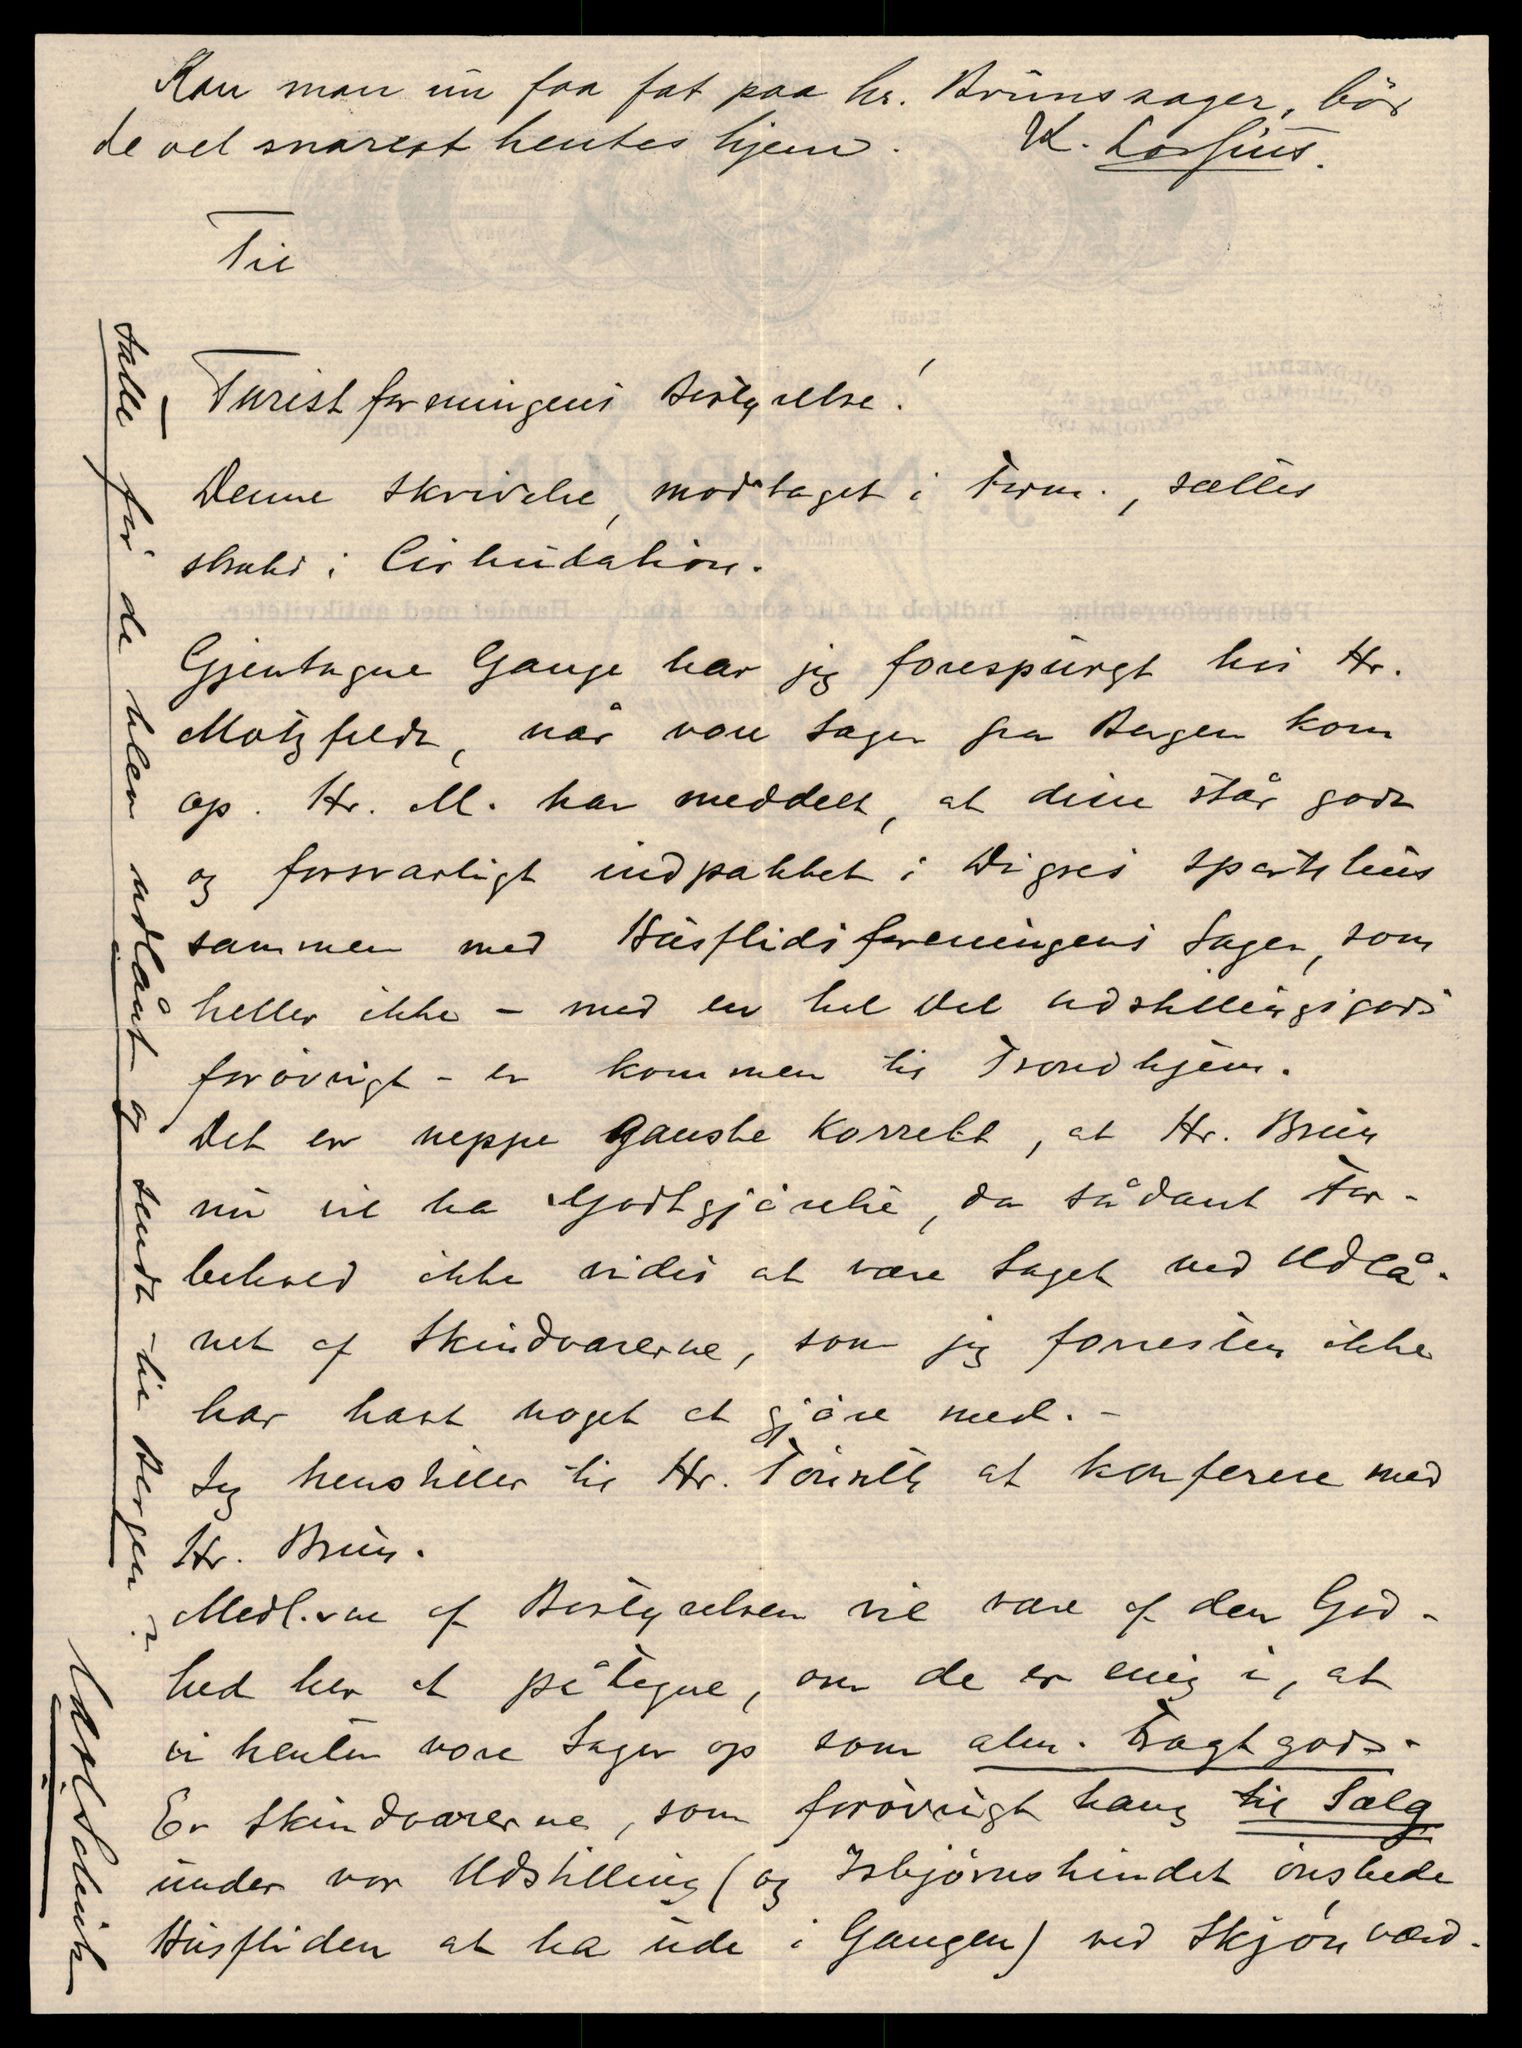 Kan man nu faa fat paa hr. Brunssager, bör
de vel snarest hentes hjem. K. Lossius.
Til
Turistforeningens Bestyrelse!
Denne skrivelse, modtaget i Form., sættes
straks i Cirkulation.
Gjentagne Gange har jeg forespurgt hos Hr.
Motzfeldt, når vore Sager fra Bergen kom
op. Hr. M. har meddelt, at disse står godt
og forsvarligt indpakket i Digres spækhus
sammen med Husflidsforeningens Sager, som
heller ikke – med en hel Del Udstillingsgods
forövrigt – er kommen til Trondhjem.
Det er neppe ganske korrekt, at Hr. Brun
nu vil ha Godtgjörelse, da sådant For-
behold ikke vides at være taget ved Udlå-
net af Skindvarerne, som jeg forresten ikke
har havt noget at gjöre med. –
Jeg henstiller til Hr. at konferere med
Hr. Brun.
Medl.erne af Bestyrelsen vil være af den God-
hed her at påtegne, om de er enig i, at
vi henter vore Sager op som alm. Fragtgods.
Er Skindvarerne, som forövrigt hang til Salg
under vor Udstilling (og Isbjørnskindet önskede
Husfliden at ha ude i Gangen) ved Skjön værd-
satte för de blev udlånt og sendt til Bergen?
Schult